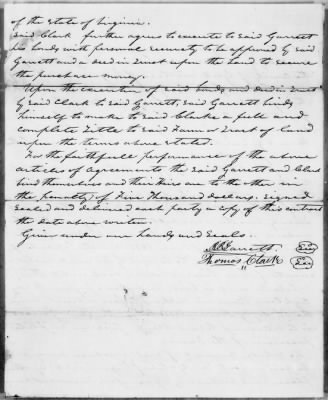 of the State of Virginia.
Said Clark further agrees to execute to said Garrett
his bonds with personal security to be approved by said
Garrett and a deed in trust upon the land to secure
the purchase money.
Upon the execution of said bonds and deed in trust
by said Clark to said Garrett, said Garrett binds
himself to make to said Clarke a full and
complete Tittle to said Farm or Tract of land
upon the terms above stated.
For the faithfull performance of the above
articles of Agreements the said Garrett and Clark
bind themselves and their heirs one to the other in
the penalty of Five Thousand dollars. Signed
Sealed and delivered each party a copy of this contract
the date above written.
Given under our hands and Seals.
Garrett
Thomas Clark